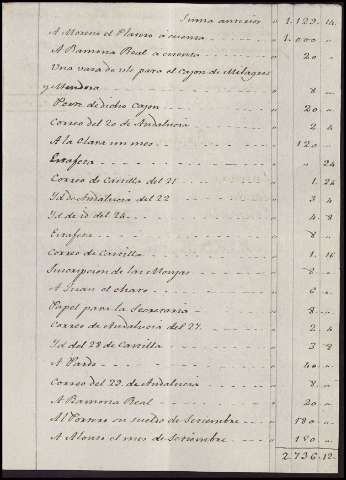 Suma anterior " 1.129. 14.
A Moreno el Platero a cuenta " 1.000 "
A Ramona Real a cuenta " 20 "
Una vara de ule para el cajon de Milagros
y Mendoza " 8 "
Porte de dicho cajon " 20 "
Correo del 20 de Andalucia " 2 4
A la Clara un mes " 120 "
Estafeta " " 24
Correo de Castilla del 21 " 1. 24
Yd de Andalucia del 22 " 3 4
Yd de id del 24 " 4. 8
Estafeta " 8 "
Correo de Castilla " 1. 16
Suscripcion de las Monjas " 8 "
A Juan el chato " 6 "
Papel para la Secretaria " 8 "
Correo de Andalucia del 27 " 2 4
Yd del 28 de Castilla " 3 8
A Pardo " 40 "
Correo del 29 de Andalucia " 8 "
A Ramona Real " 20 "
Al Portero su sueldo de Setiembre " 180 "
A Alonso el mes de Setiembre " 150 "
2.736. 12